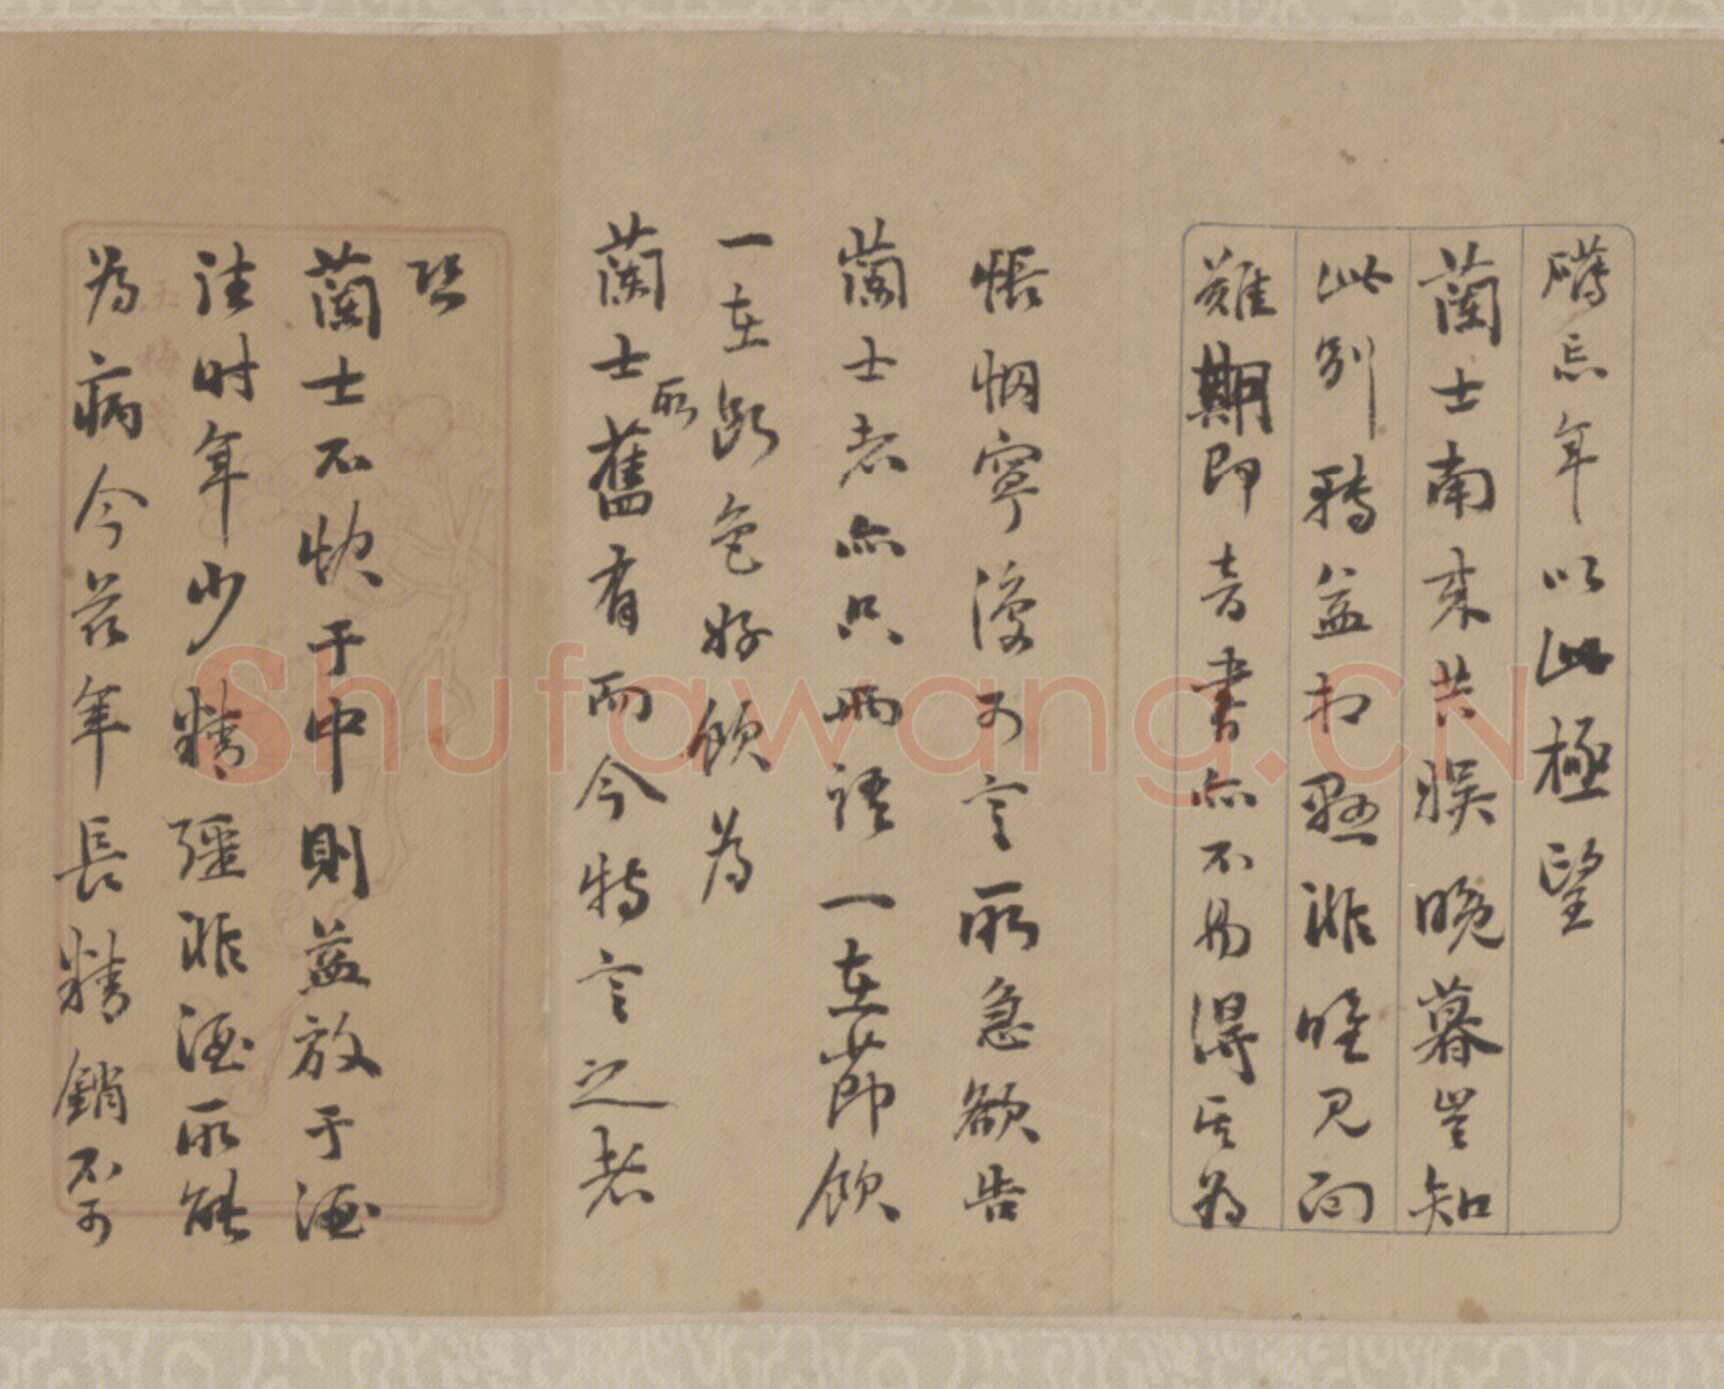 忘年以此極望
蘭士南来共娛晚暮豈知
此别轉益相懸非唯見面
難期即音書亦不易得其為
悵惘寧復可言所急欲告
蘭士者亦只兩語一在節飲
一在斷色好飲為
蘭士所舊有而今特言之者
恐
蘭士不快于中則益放于酒
往时年少精彊非酒所能
為病今茲年長精銷不可
Shufawang.CN